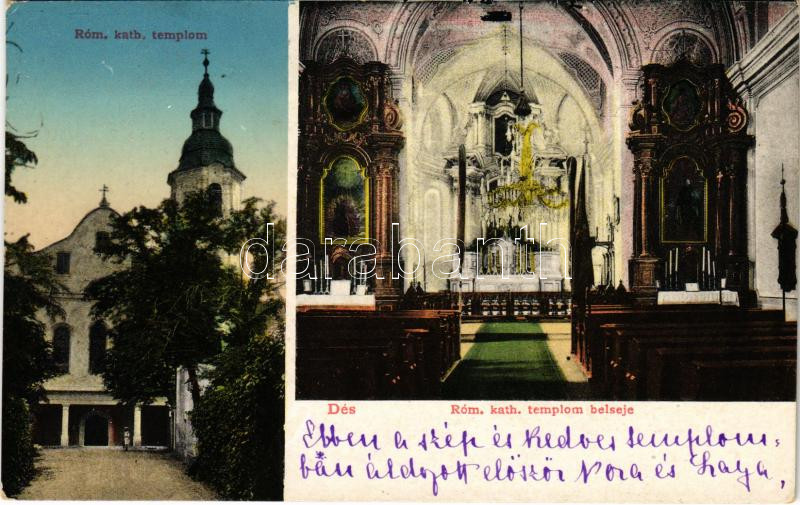 Róm. kath. templom
darabanth.com
Dés
Róm. kath. templom belseje
Ebben a szép és kedves templom=
bán áldozott először Nóra és